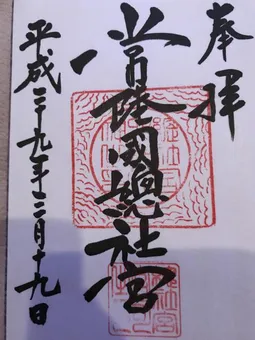 奉拝
常陸國總社宮
平成二十九年二月十九日